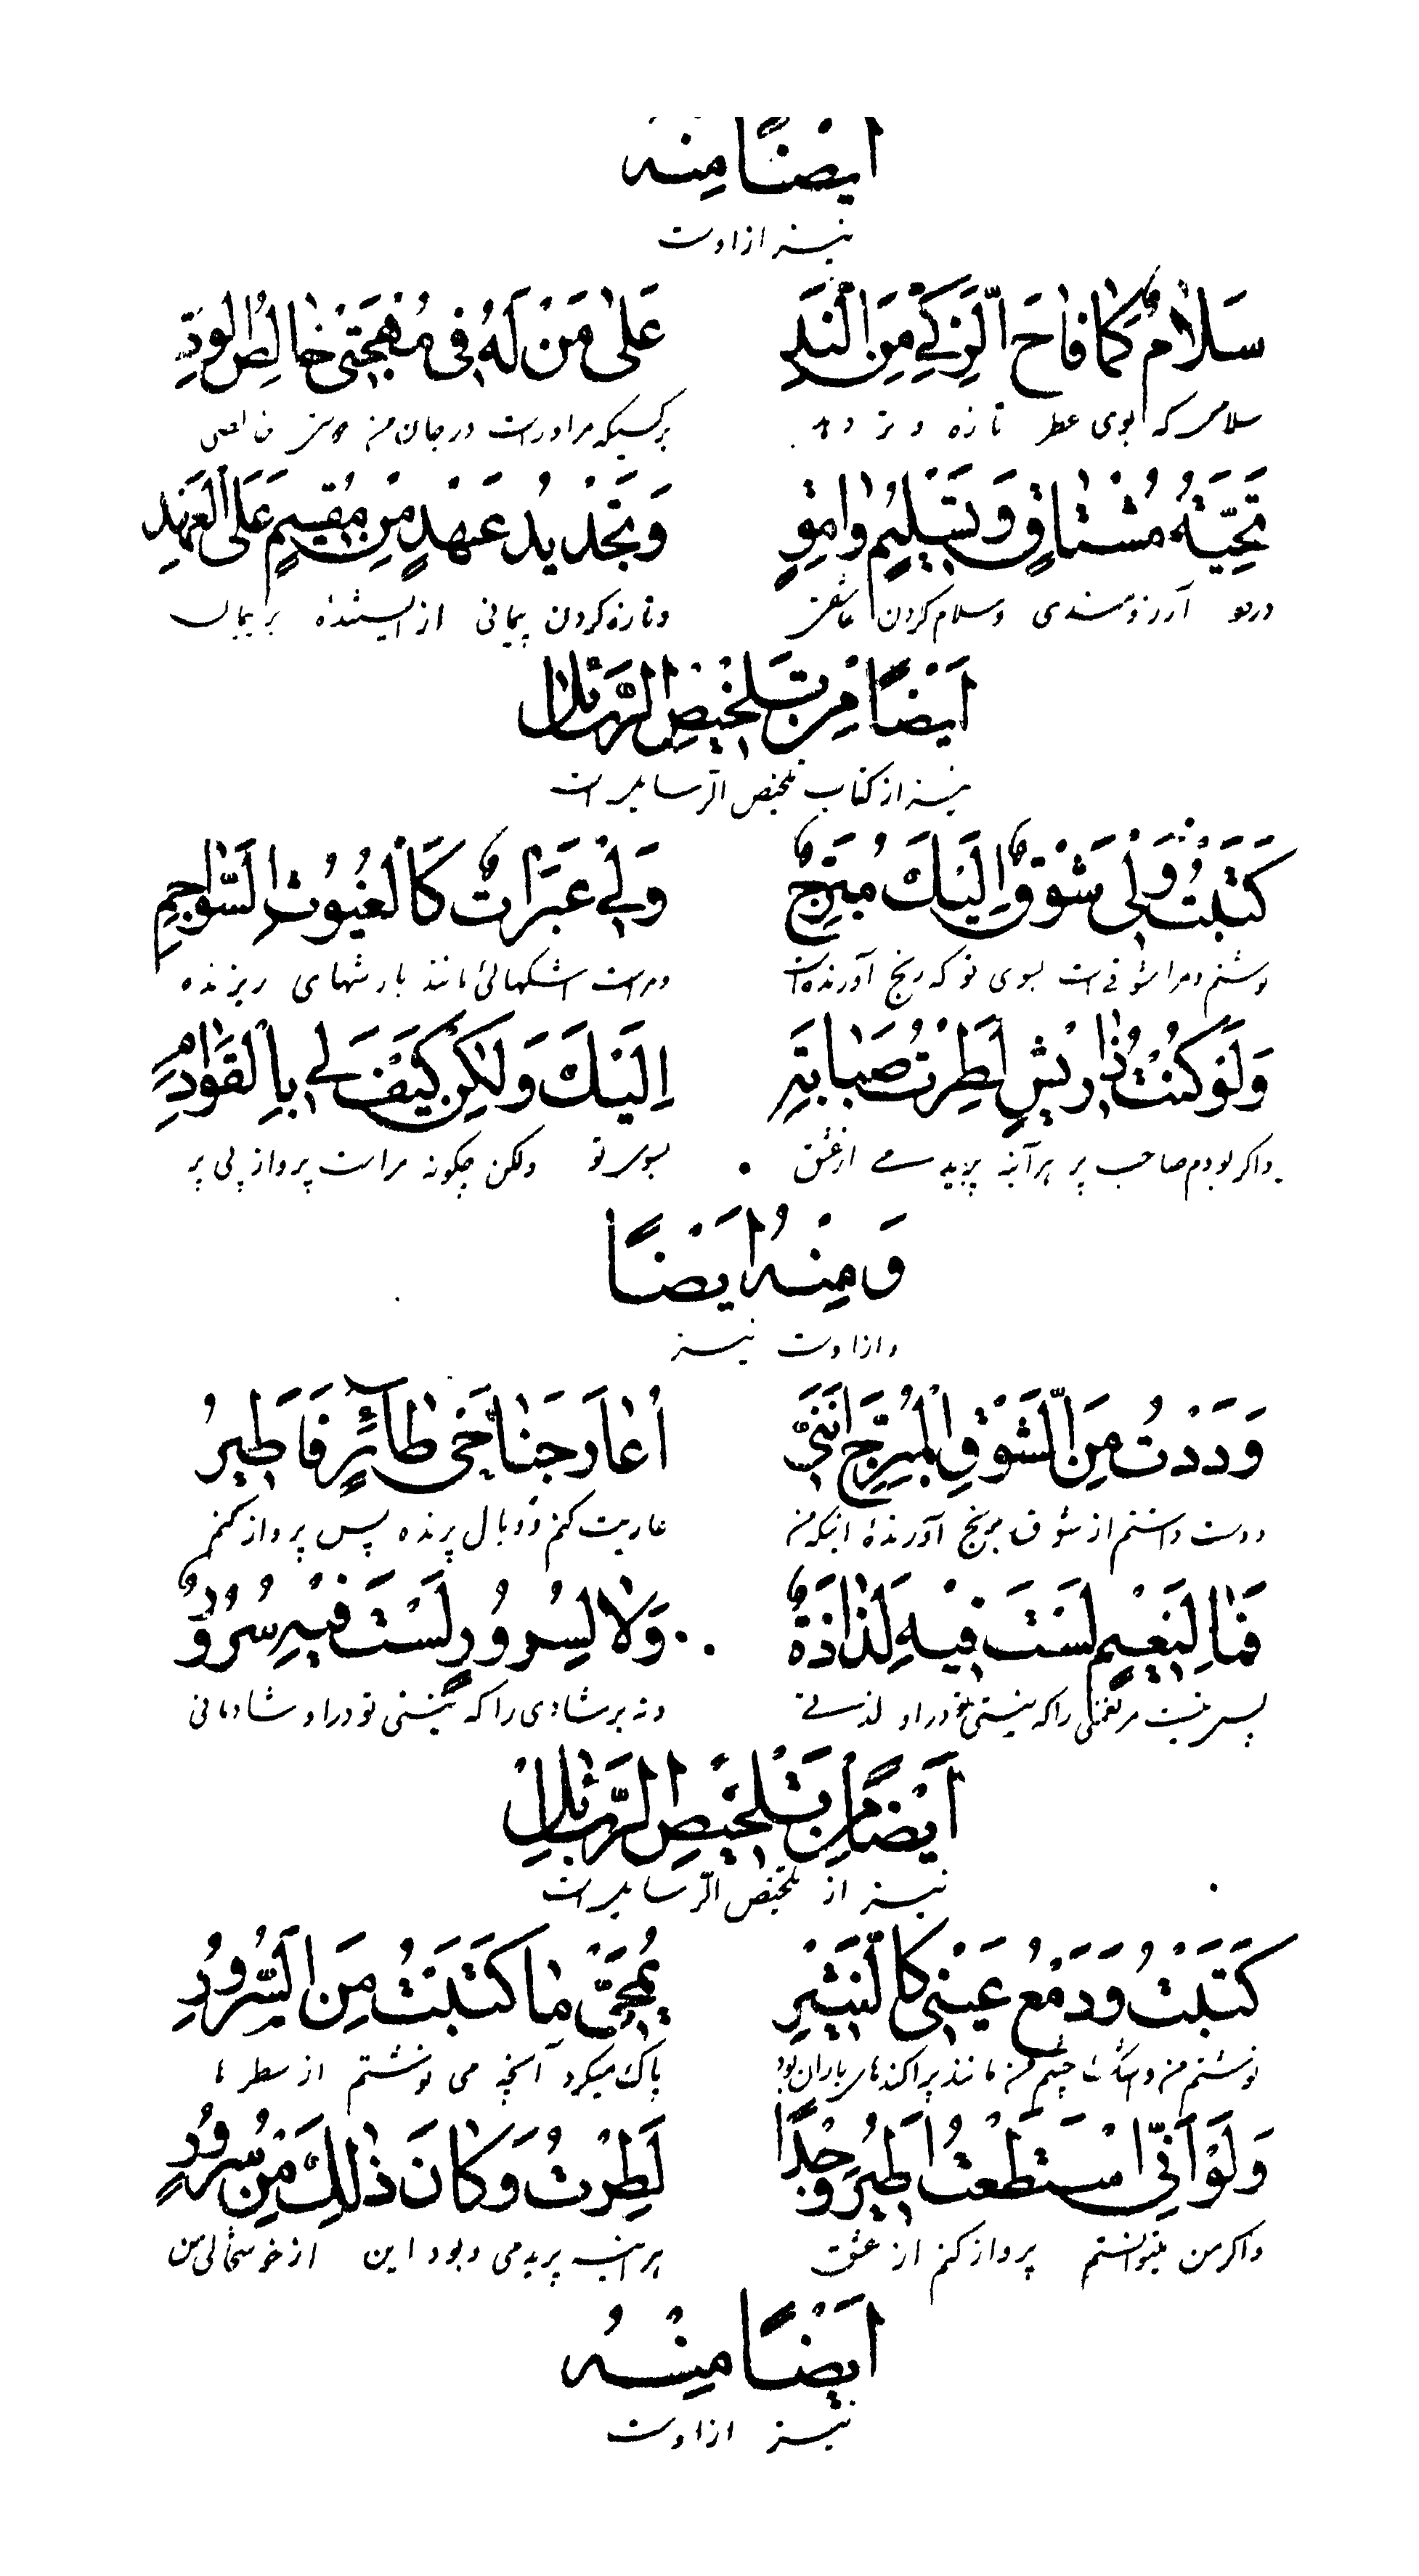 اَیْضًا مِنْهُ
نیز از اوست
سَلٰامٌ كَمٰا فٰاحَ الزَّكِيُّ مِنَ النَّدِ عَلىٰ مَنْ لَهُ فِي مُهْجَتِي خٰالِصُ الوُدِّ
سلامی که بوی عطر تازه بر کسیکه مر او راست در جان من خالصی
تَحِيَّةُ مُشْتٰاقٍ وَ تَسْلِيمُ وٰامِقٍ وَ تَجْدِيدُ عَهْدٍ مِنْ مُقِيمٍ عَلَى العَهْدِ
درود آرزومندی و سلام کردن عاشقی و تازه کردن پیمانی از ایستنده بر پیمان
اَیْضًا مِنْ تَلْخِيصِ الرَّسٰائِل
نیز از کتاب تلخیص الرسایل است
كَتَبْتُ وَلِي شَوْقٌ اِلَيْكَ مُبَرِّحٌ وَلِي عَبَرٰاتٌ كَالْغُيُوثِ السَّوٰاجِمِ
نوشتم و مرا شوقی است بسوی تو که رنج آورنده است و مراست اشکهائی مانند بارشهای ریزنده
وَلَوْ كُنْتُ ذٰا رِيْشٍ لَطِرْتُ صَبٰابَةً اِلَيْكَ وَلٰكِنْ كَيْفَ لِي بِالْقَوٰادِمِ
و اگر بودم صاحب پر هرآینه پریدمی از عشق بسوی تو ولکن چگونه مراست پرواز بی پر
وَ مِنْهُ اَيْضًا
و از اوست نیز
وَدَدْتُ مِنَ الشَّوْقِ المُبَرِّحِ اَنَّنِي اُعٰارَ جَنٰاحَيْ طٰائِرٍ فَاَطِيرُ
دوست داشتم از شوق برنج آورنده اینکه من عاریت کنم دو بال پرنده پس پرواز کنم
فَمٰا لِنَعِيْمٍ لَسْتَ فِيْهِ لَذٰاذَةٌ وَلٰا لِسُرُورٍ لَسْتَ فِيْهِ سُرُورُ
پس نیست مر نعمتی را که نیستی تو در او لذتی و نه بر شادی را که نیستی تو در او شادمانی
اَيْضًا مِنْ تَلْخِيصِ الرَّسٰائِلِ
نیز از تلخیص الرسایل است
كَتَبْتُ وَدَمْعُ عَيْنِي كَالنَّثِيْرِ يُمَحِّي مٰا كَتَبْتُ مِنَ السُّرُورِ
نوشتم من و اشک چشم من مانند پراکندهای باران بود پاک میکرد آنچه می نوشتم از سطرها
وَلَوْ اَنِّي اسْتَطَعْتُ اَطِيرُ وَجْدًا لَطِرْتُ وَكٰانَ ذٰلِكَ مِنْ سُرُورٍ
و اگر من میتوانستم پرواز کنم از عشق هر آینه پریدمی و بود این از خوشحالی من
اَيْضًا مِنْهُ
نیز از اوست